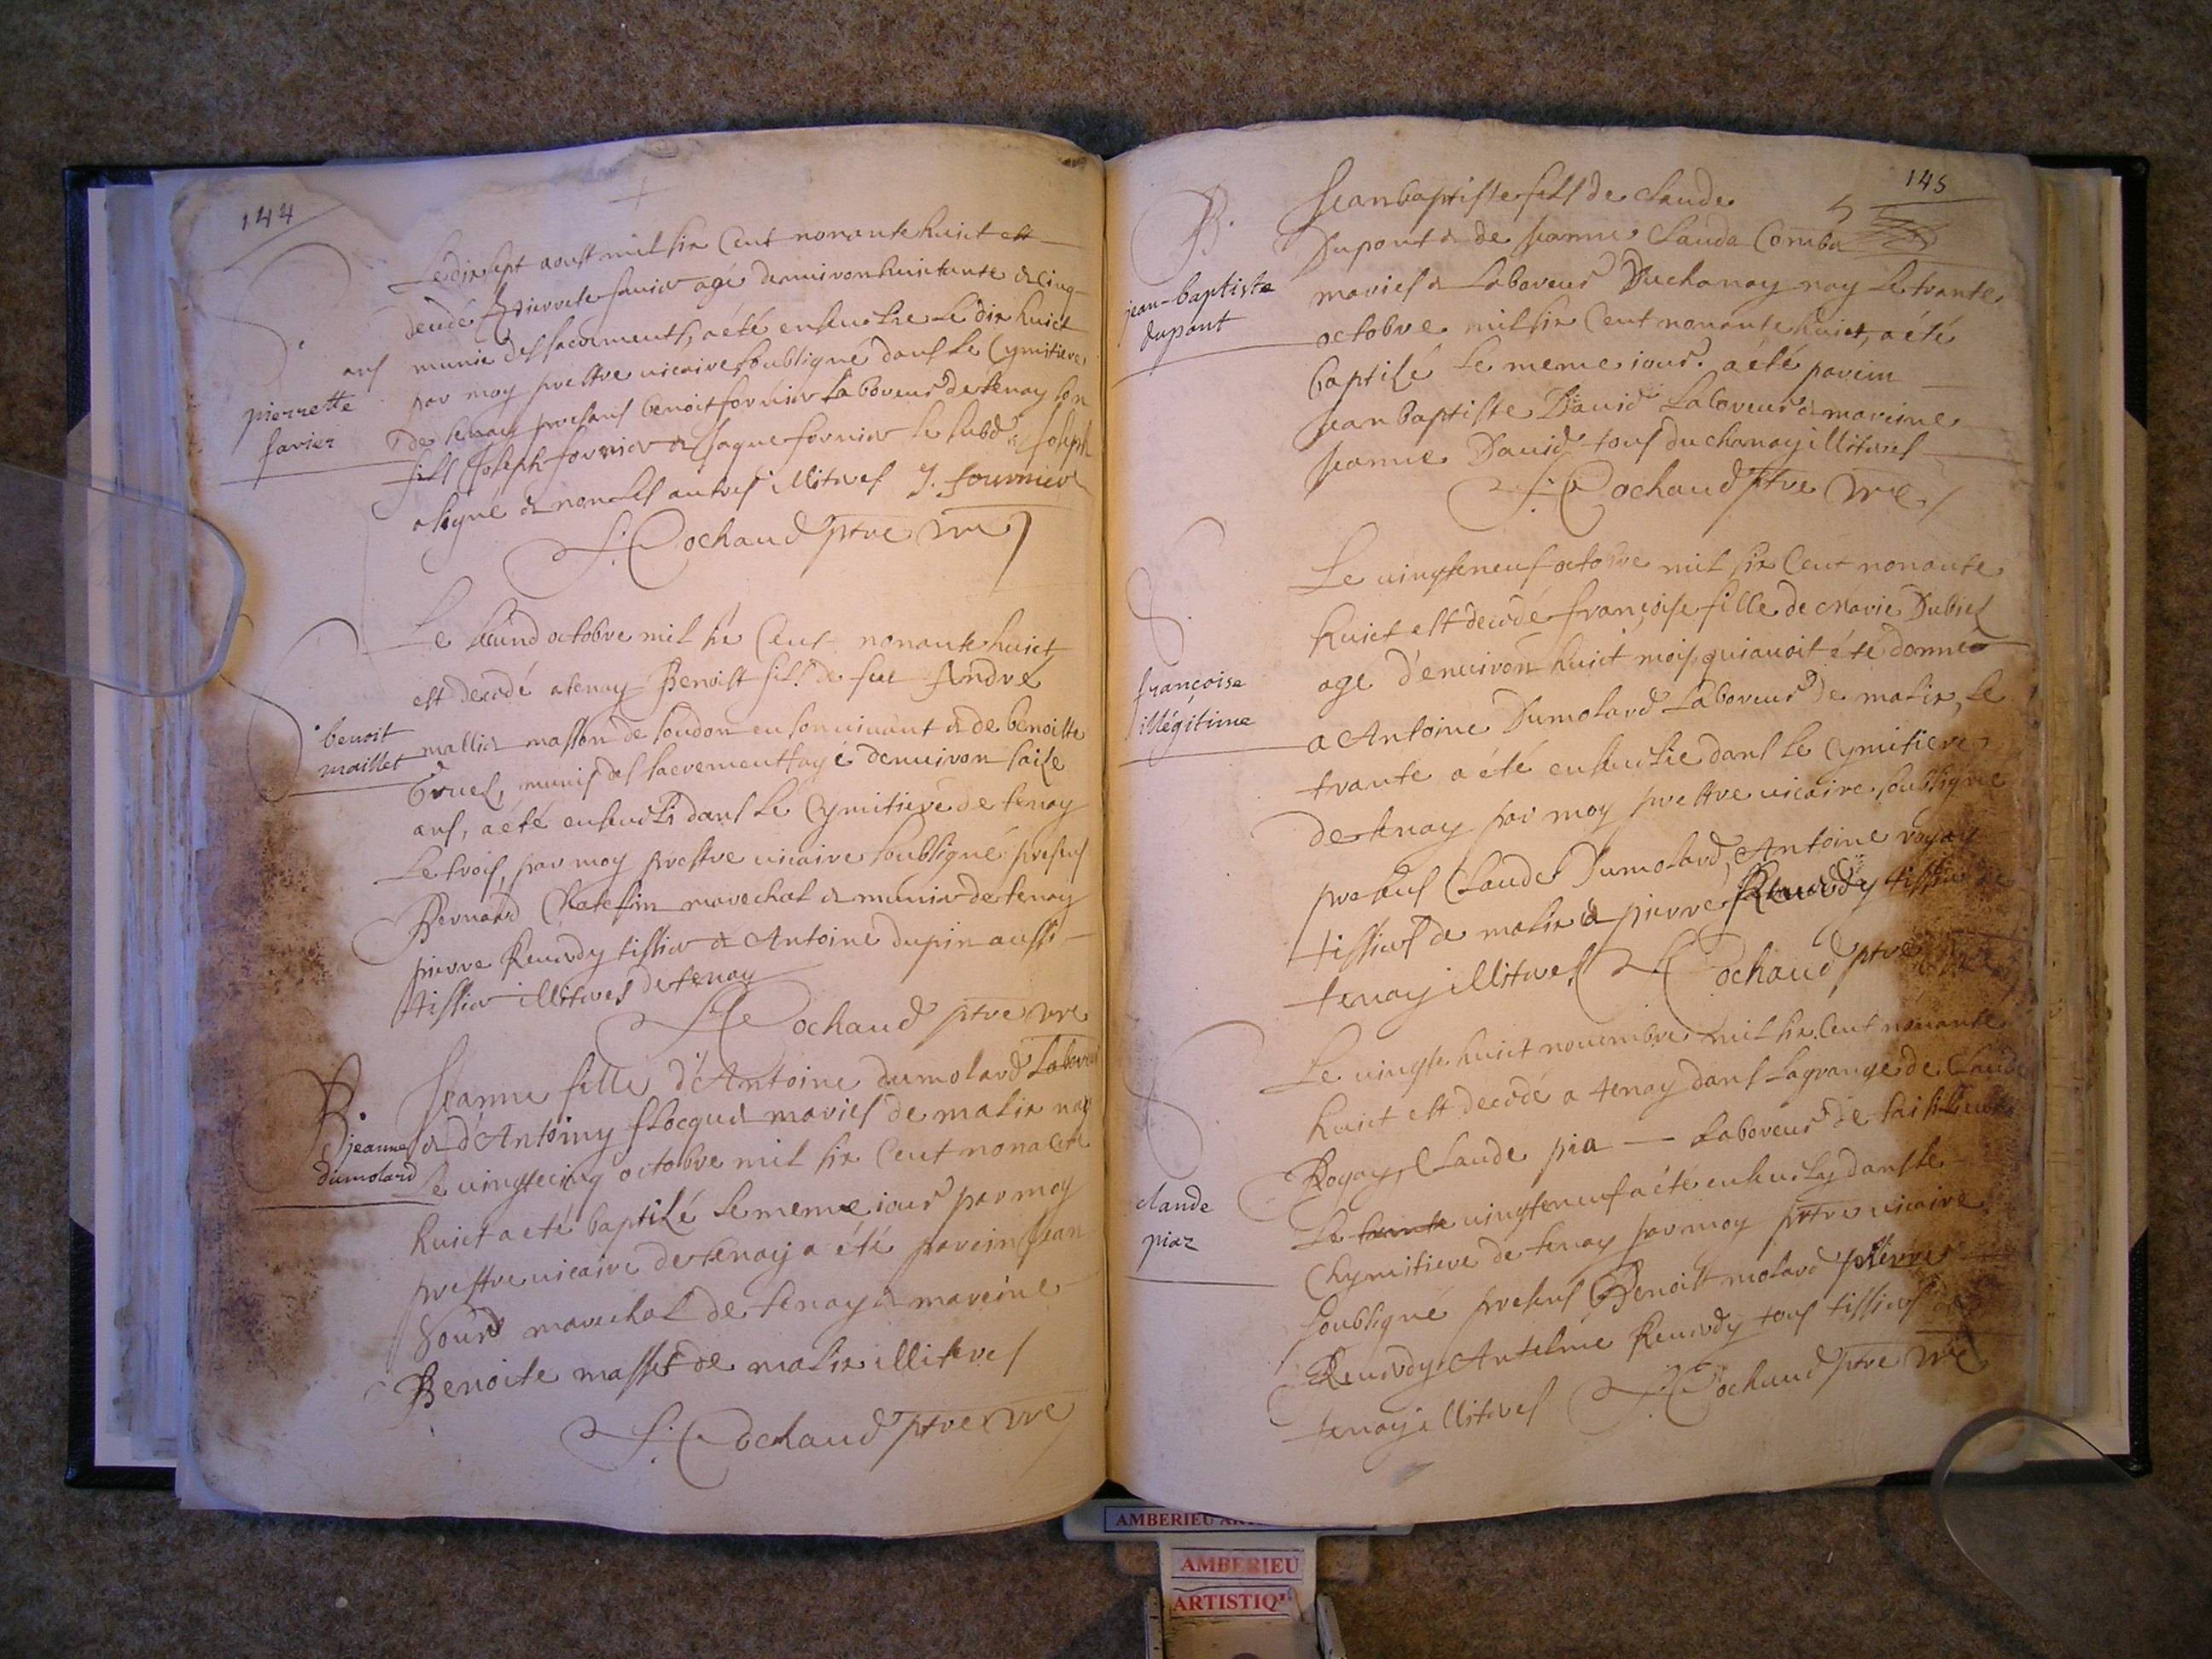 144
Le dix sept aoust mil six Cent nonante huict est
decedé pierrete favier agé denviron huictante & cinq
ans munie des sacrements, a été ensevelie le dix huict
pierrette
favier
par moy prestre vicaire soubsigné dans le Cymitiere
de tenay presens benoit fornier laboveur de tenay son
fils Joseph fornier & Jaque fornier le subd. Joseph
a signé & non les autres illitres J. fournier
S. Cochaud ptre vre
Le second octobre mil six Cent nonante huict
est decedé a tenay Benoist fils de feu André
benoit
maillet
mallier masson de soudon en son vivant & de benoitte
Gruel, munis des sacrements agé denviron saise
ans, a été ensevelis dans le Cymitiere de tenay
Le trois, par moy prestre vicaire soubsigné presens
Bernard Chatefin marechal & munier de tenay
pierre Revirdy tissier & Antoine dupin aussi
tissier illitres de tenay
S. Cochaud ptre vre
B.
jeanne
dumolard
Jeanne fille d'Antoine dumolard Labovr
& d'Antoiny flocquet maries de malix nay
Le vingtecinq octobre mil six Cent nonante
huict a eté baptisé le meme iour par moy
prestre vicaire de tenay a été parein Jean
Sours marechal de tenay & mareine
Benoite masset de malix illitres
S. Cochaud ptre vre
145
B.
Jeanbaptiste fils de claude
5
Dupont & de Jeanne Clauda Comba
jean-baptiste
dupont
maries & Laboveur Duchanay nay le trante
octobre mil six Cent nonante huict, a été
baptisé le meme iour. a été parein
Jeanbaptiste David Laboveur & mareine
Jeanne David tous du chanay illitres
S. Cochaud ptre vre
Le vingteneuf octobre mil six Cent nonante
huict est decedé françoise fille de Marie Dubiel
françoise
illégitime
age d'environ huict mois, qui avoit été donnée
a Antoine Dumolard Laboveur de malix, le
trante a été ensevelie dans le Cymitiere
de tenay par moy prestre vicaire soubsigné
presens Claude Dumolard, Antoine rogay
tissiers de malix & pierre Revirdy tissier de
tenay illitres S. Cochaud ptre
Le vingte huict novembre mil six Cent nonante
huict est decedé a tenay dans la grange de Claude
claude
piaz
Rogay, Claude pia — Laboveur de
Le trante vingteneuf a été ensevely dans le
Chymitiere de tenay par moy prtre vicaire
soubsigné presens Benoist molard pierre
Revirdy Antelme Revirdy tous tissiers de
tenay illitres S. Cochaud ptre vre
AMBERIEU
AMBERIEU
ARTISTIQ